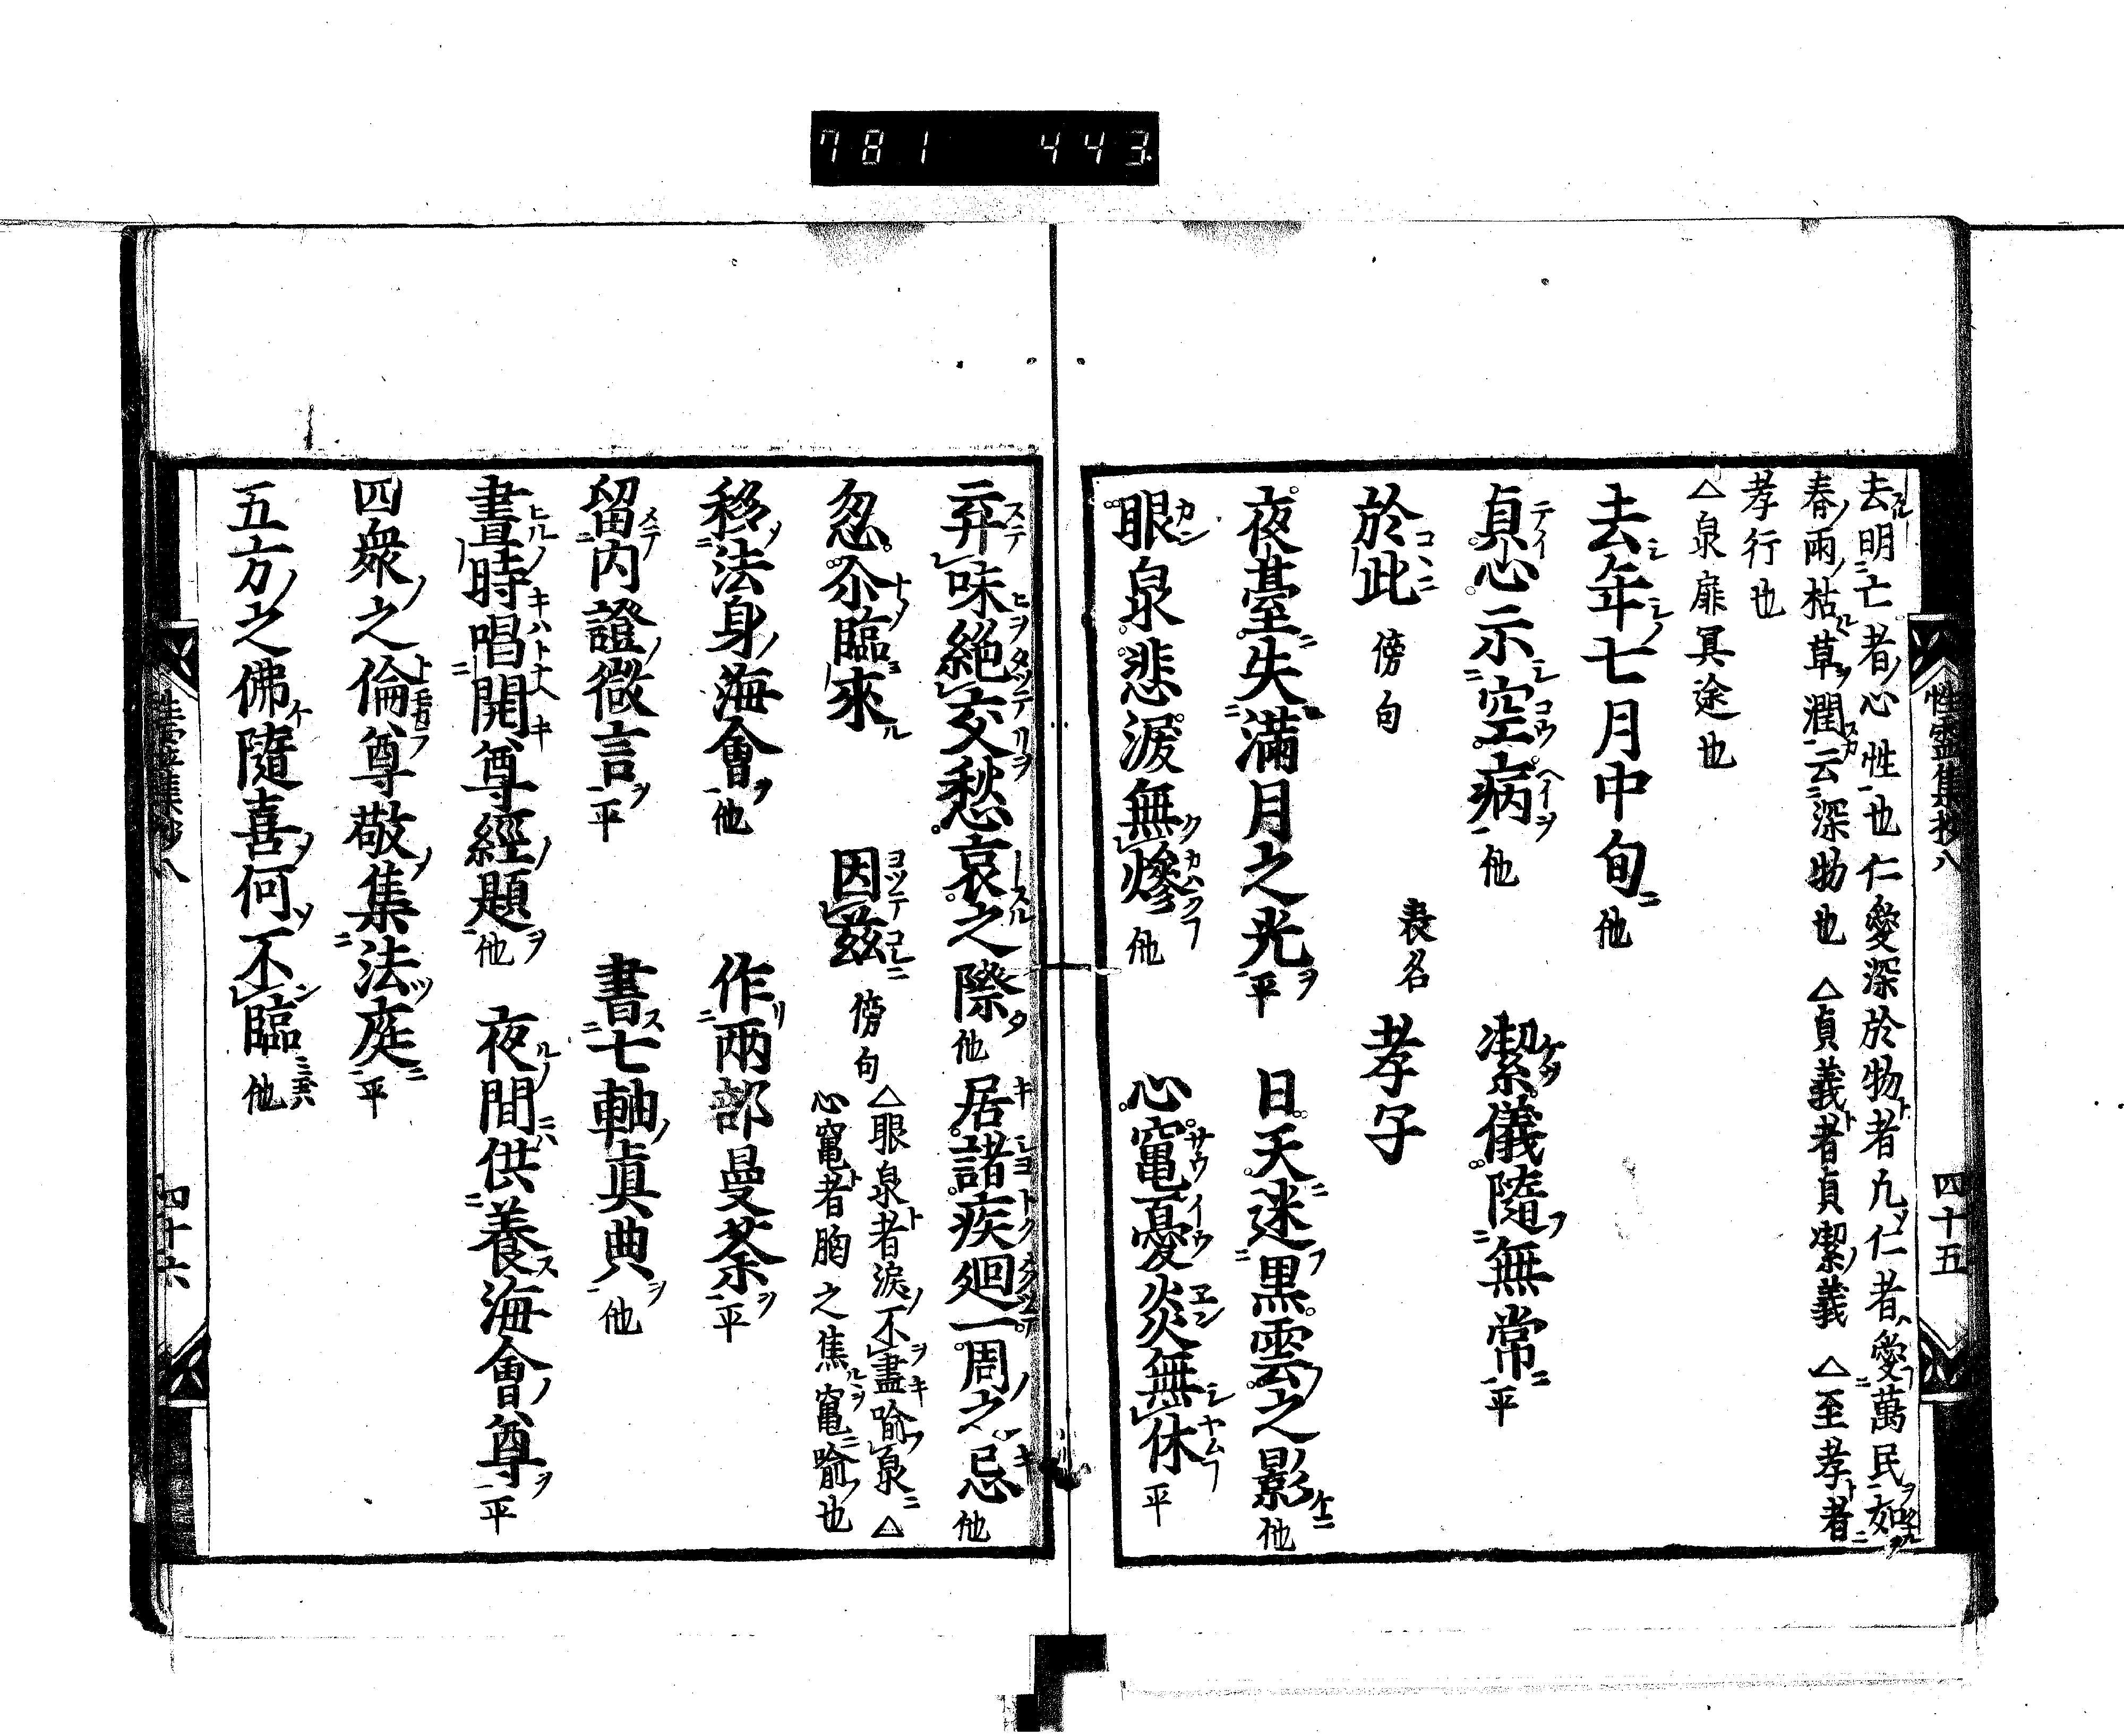 781 443
性霊集抄八 四十五
去明亡者心性也仁愛深於物者凢仁者愛萬民如
春雨枯草潤云深物也 △貞義者貞潔義 △至孝者
孝行也
△泉扉冥途也
去年七月中旬他
貞心示空病他 潔儀隨無常平
於此 傍句 表名 孝子
夜臺失滿月之光平 日天迷黒雲之影他
眼泉悲淚無燥他 心竈憂炎無休平
弃味絶交愁哀之際他 居諸疾廻一周之忌他
忽尒臨來 因茲 傍句 △眼泉者淚不盡喻泉 △
心竈者胸之焦竈喻也
移法身海會他 作兩部曼荼平
留内證微言平 書七軸眞典他
晝時唱開尊經題他 夜間供養海會尊平
四衆之倫尊敬集法庭平
五方之佛隨喜何不臨他
四十六